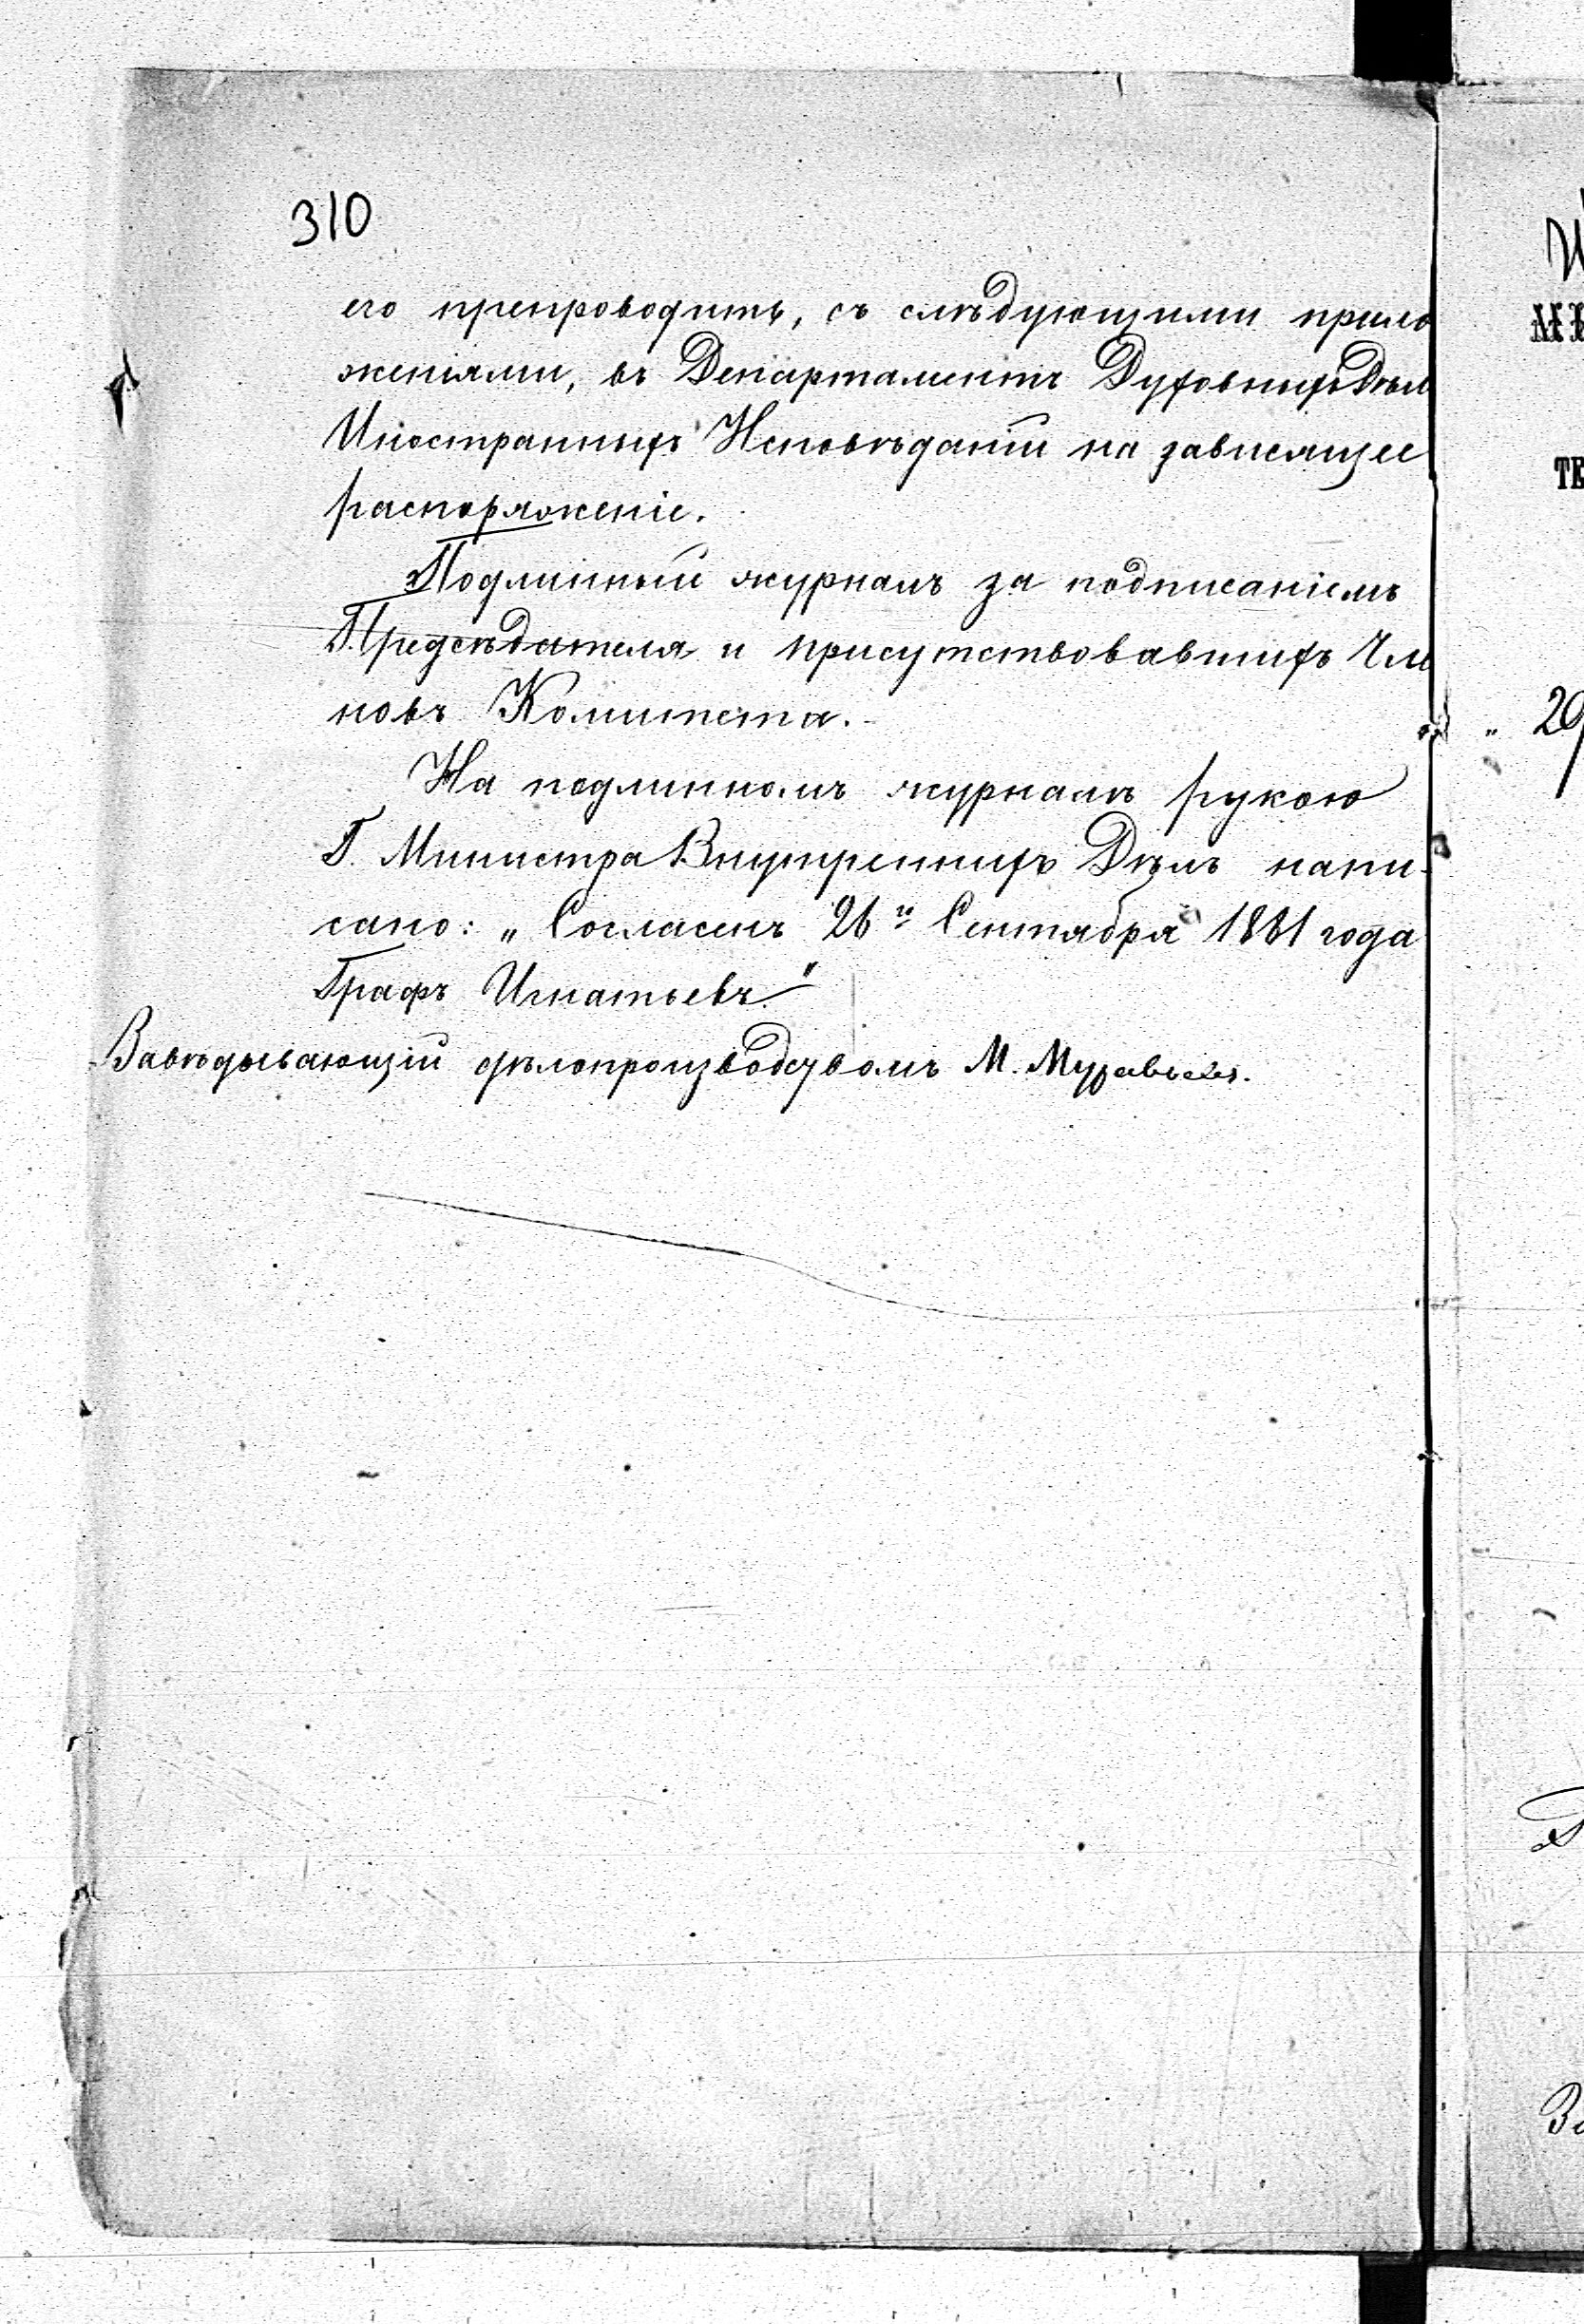 310
его препроводить, съ слѣдующими прило
женіями, въ Департаментъ Духовныхъ Дѣлъ
Иностранныхъ Исповѣданій на зависящее
распоряженіе.
Подлинный журналъ за подписаніемъ
Г. Предсѣдателя и присутствовавшихъ Чле
новъ Комитета.
На подлинномъ журналѣ рукою
Г. Министра Внутреннихъ Дѣлъ напи-
сано: „Согласенъ 26го Сентября 1881 года
Графъ Игнатьевъ."
Завѣдывающій дѣлопроизводствомъ М. Муравьевъ.